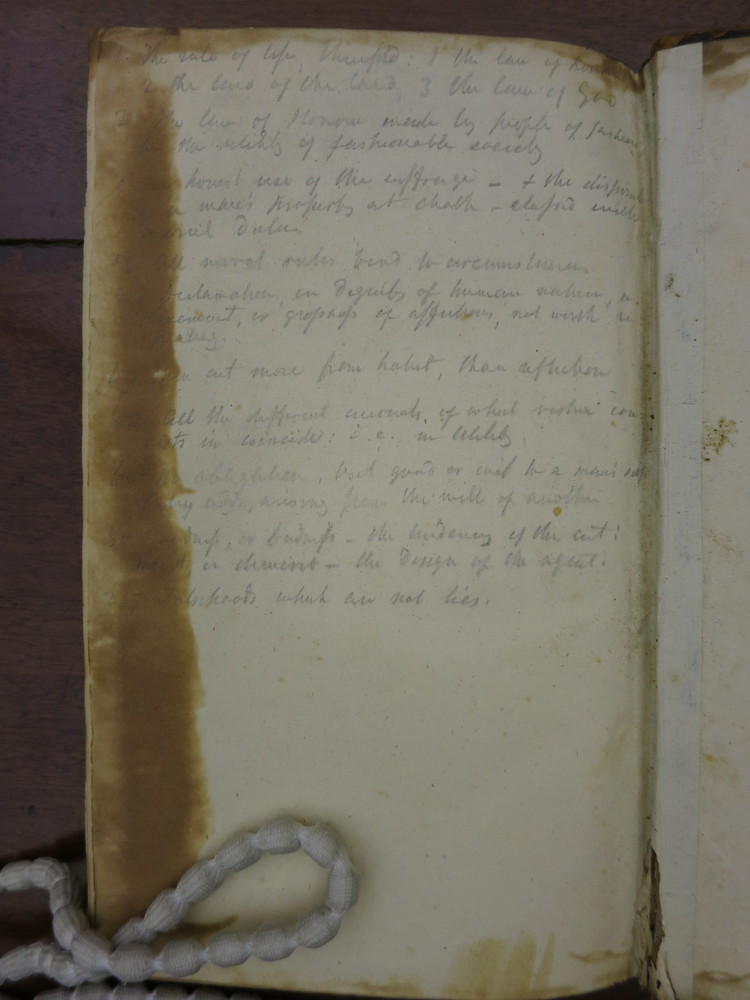 The rule of life, threefold: 1 the law of honor
2 the law of the land, 3 the law of God
The law of Honour made by people of fashion
the utility of fashionable society
honest use of the suffrage – + the disposal
man's property at death – classed with
Duties
All moral rules bend to circumstances
declamation, on dignity of human nature,
or grossness of affections, not worth
act more from habit, than reflection
All the different accounts, of what virtue
in coincide: i.e. in Utility.
No obligation, but good or evil to a man's self
arising from the will of another
or badness – the tendency of the act:
or demerit – the design of the agent.
Falsehoods which are not lies.